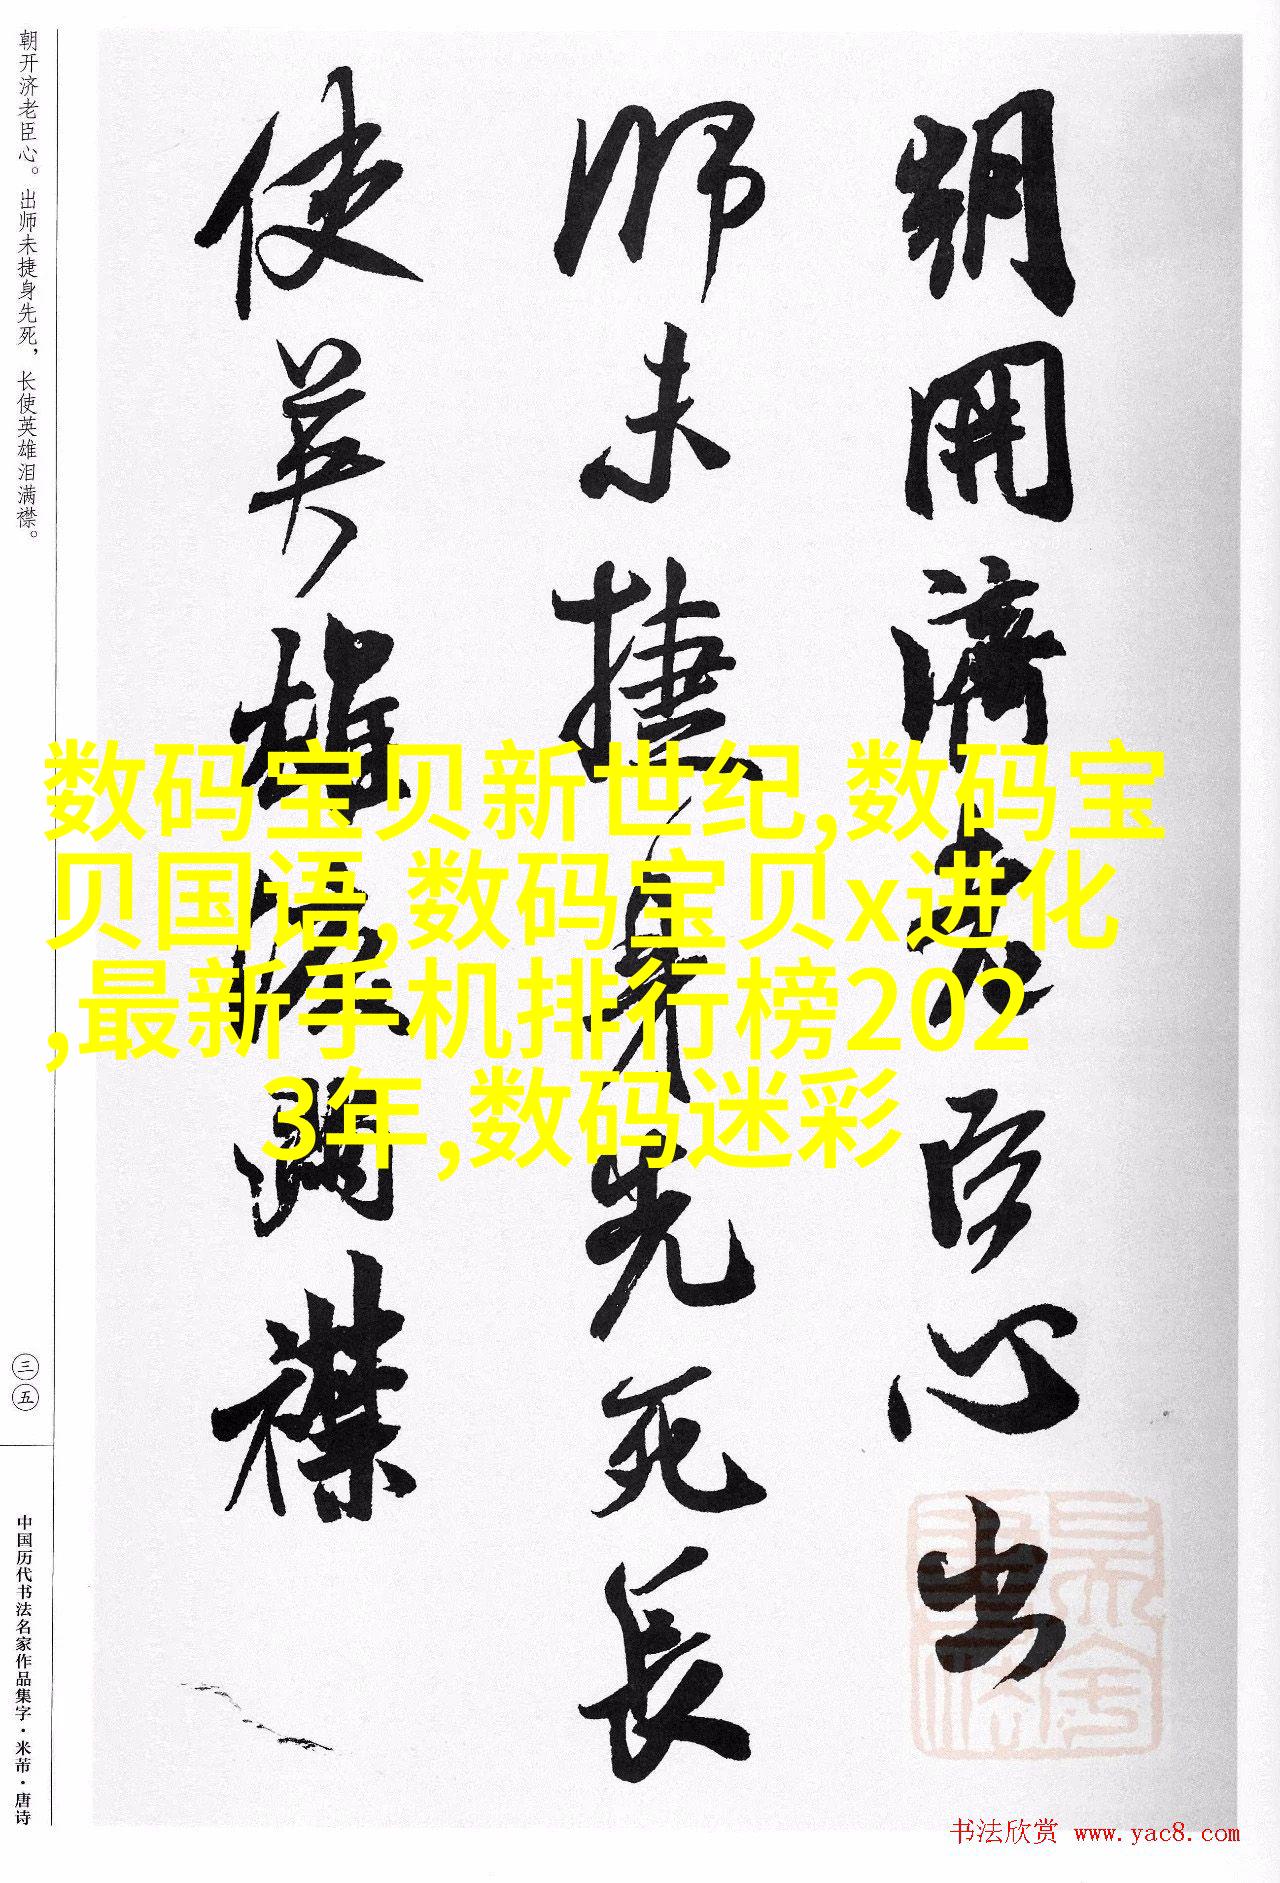 朝开济老臣心。出师未捷身先死，长使英雄泪满襟。
三五
中国历代书法名家作品集字·米芾·唐诗
朝開濟老臣心出
師未捷身先死長
使英雄淚滿襟
数码宝贝新世纪,数码宝
贝国语,数码宝贝x进化
,最新手机排行榜202
3年,数码迷彩
书法欣赏 www.yac8.com